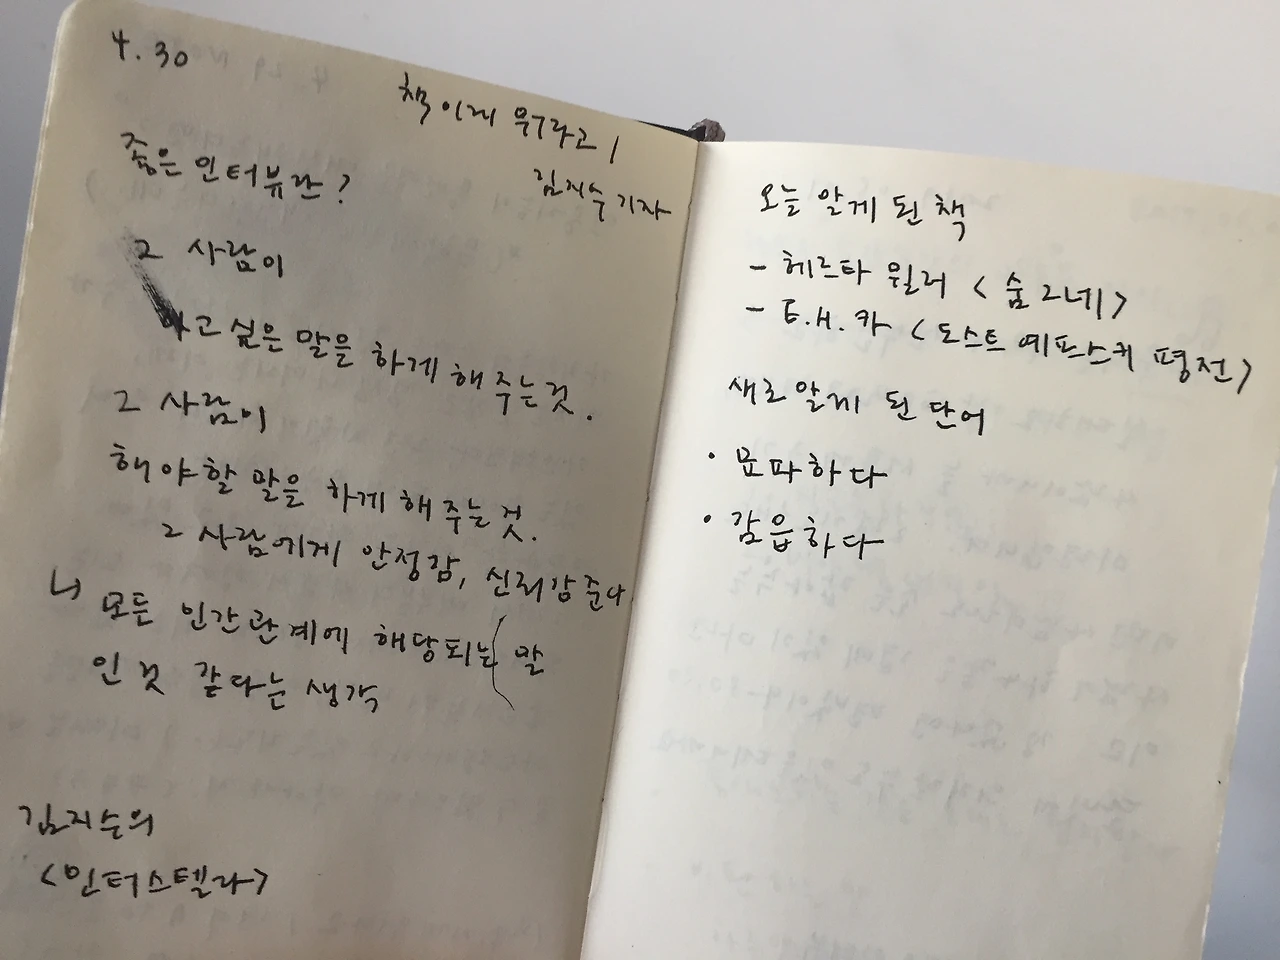 4.30
책이게 뭐라고 /
김지수 기자
좋은 인터뷰란?
그 사람이
하고싶은 말을 하게 해주는것.
그 사람이
해야할 말을 하게 해주는것.
그 사람에게 안정감, 신뢰감 준다
모든 인간관계에 해당되는 말
인 것 같다는 생각
김지수의
<인터스텔라>
오늘 알게 된 책
- 헤르타 뮐러 <숨그네>
- E.H. 카 <도스트예프스키 평전>
새로 알게 된 단어
· 묘파하다
· 감읍하다